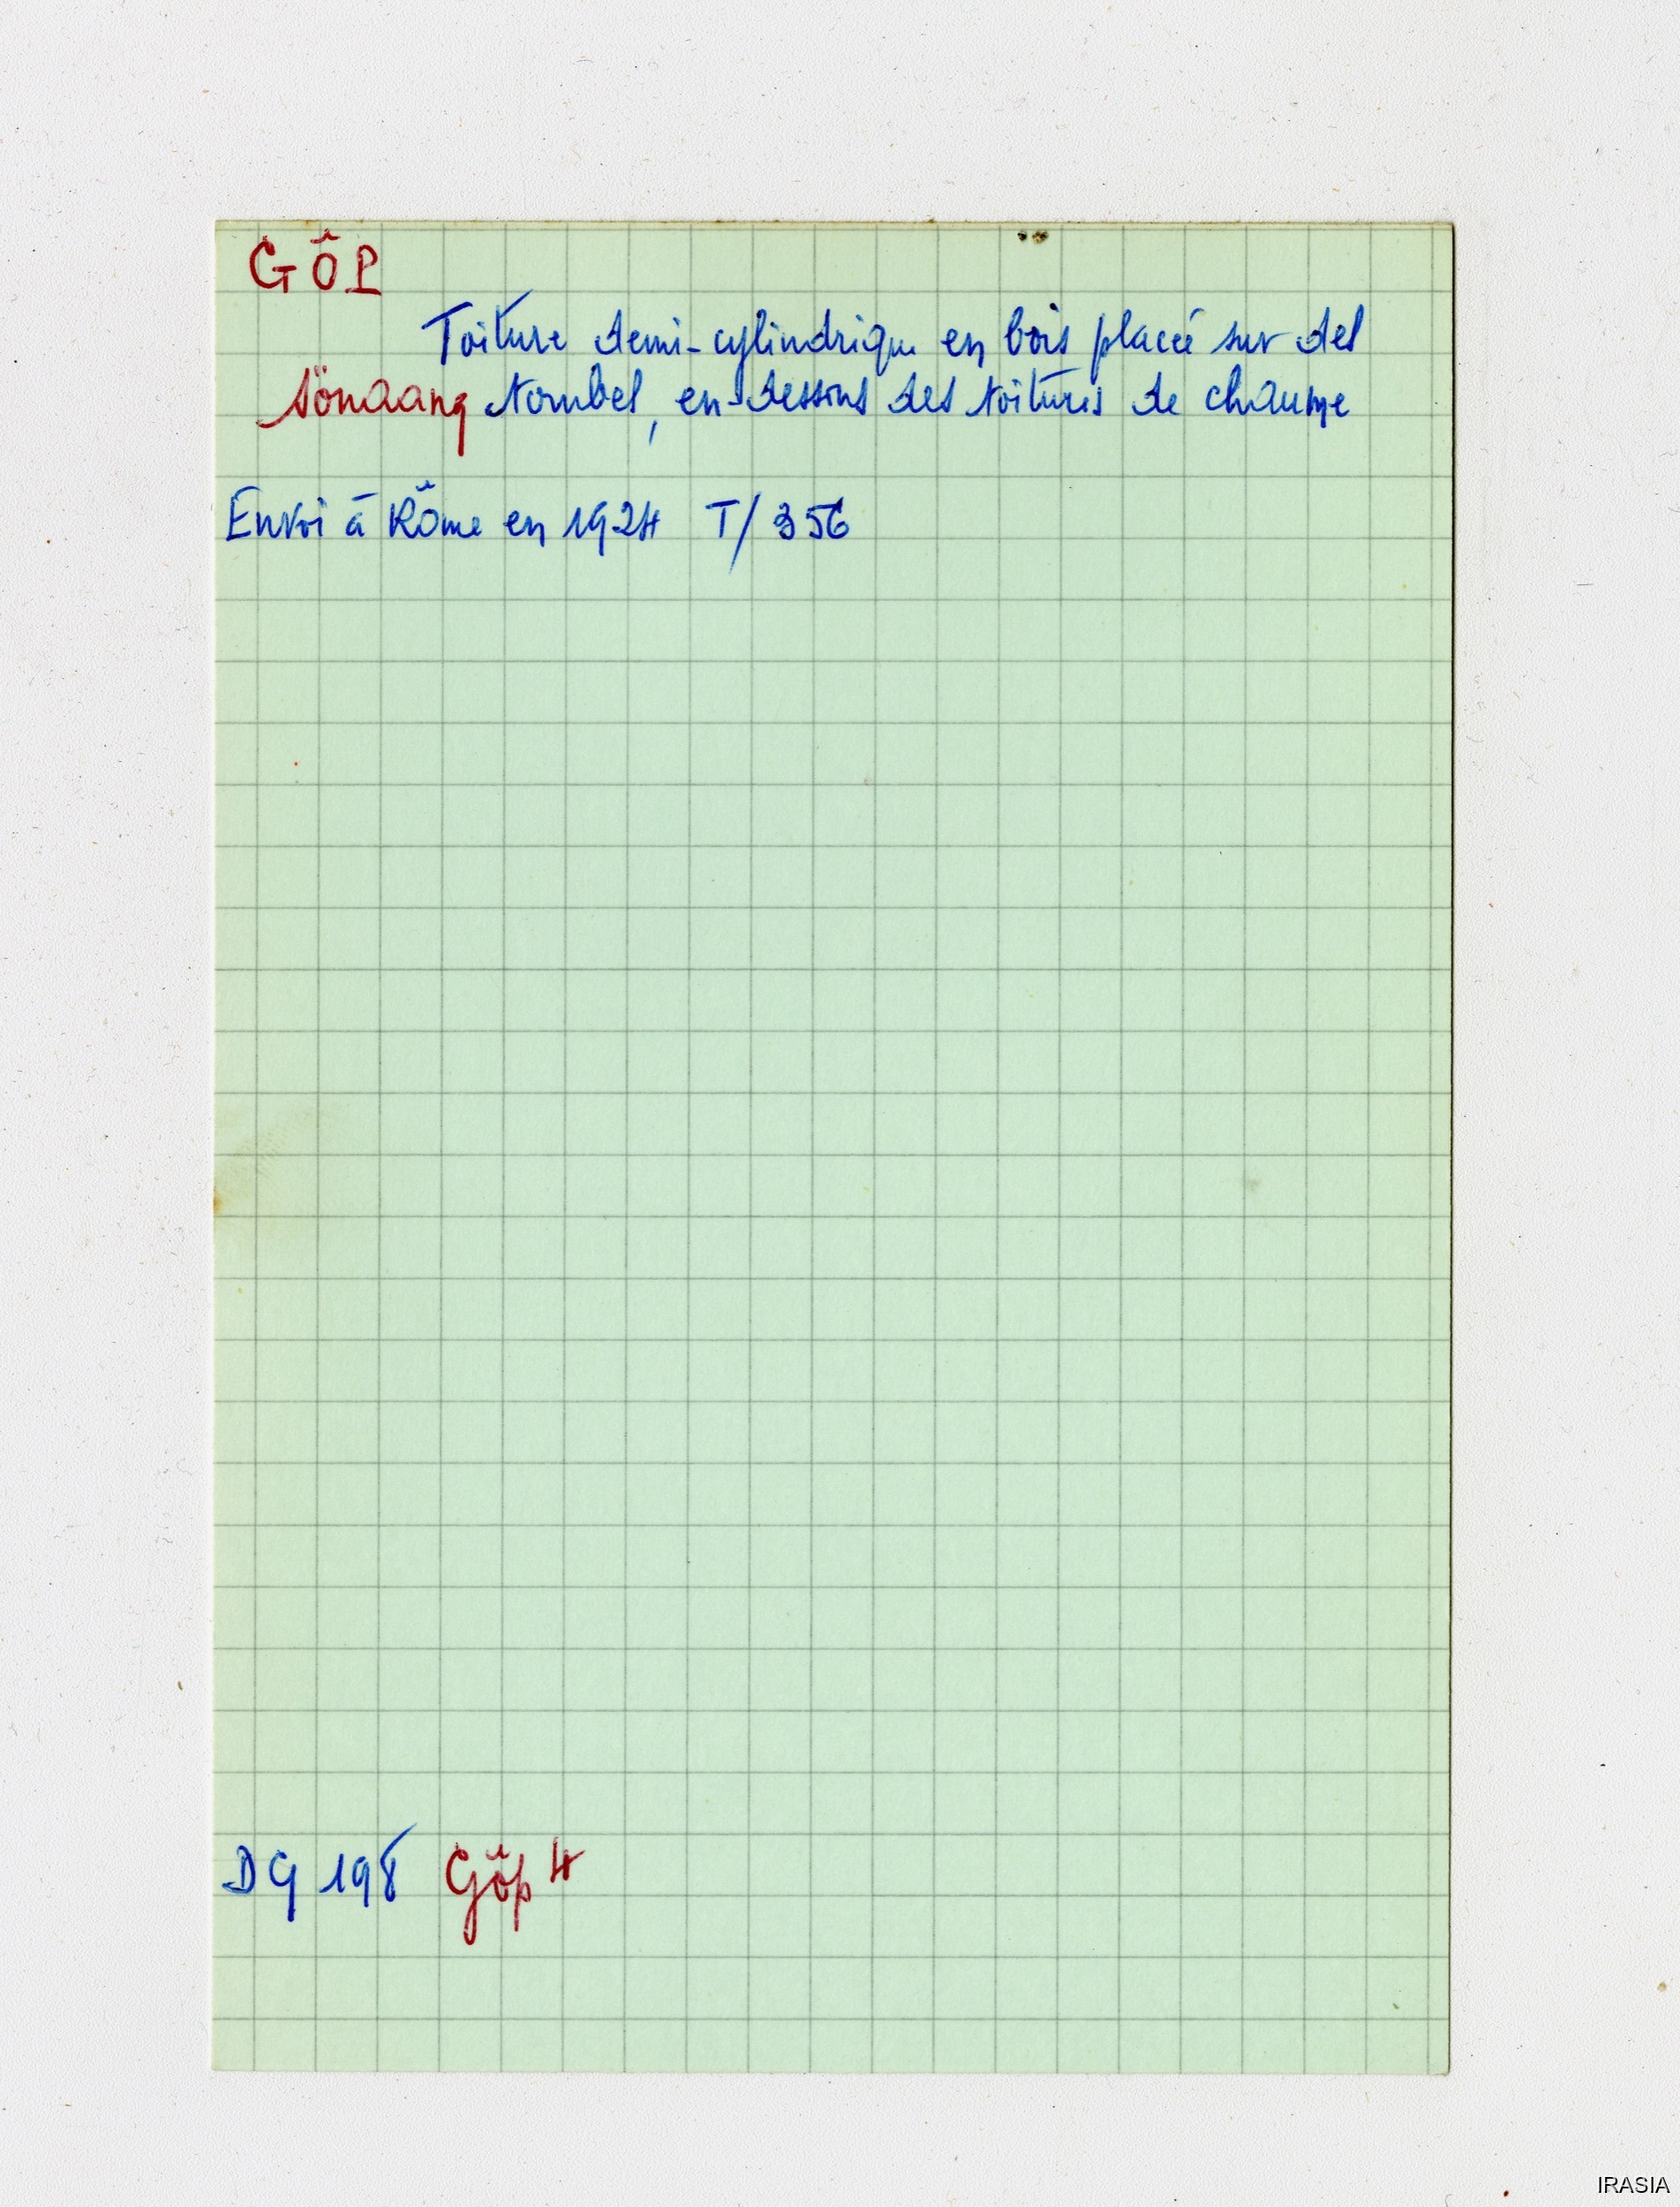 GÖ̆P
Toiture demi-cylindrique en bois placée sur des
sönaang tombes, en-dessous des toitures de chaume
Envoi à Rome en 1924 T/356
DG 198 Gö̆p 4
IRASIA